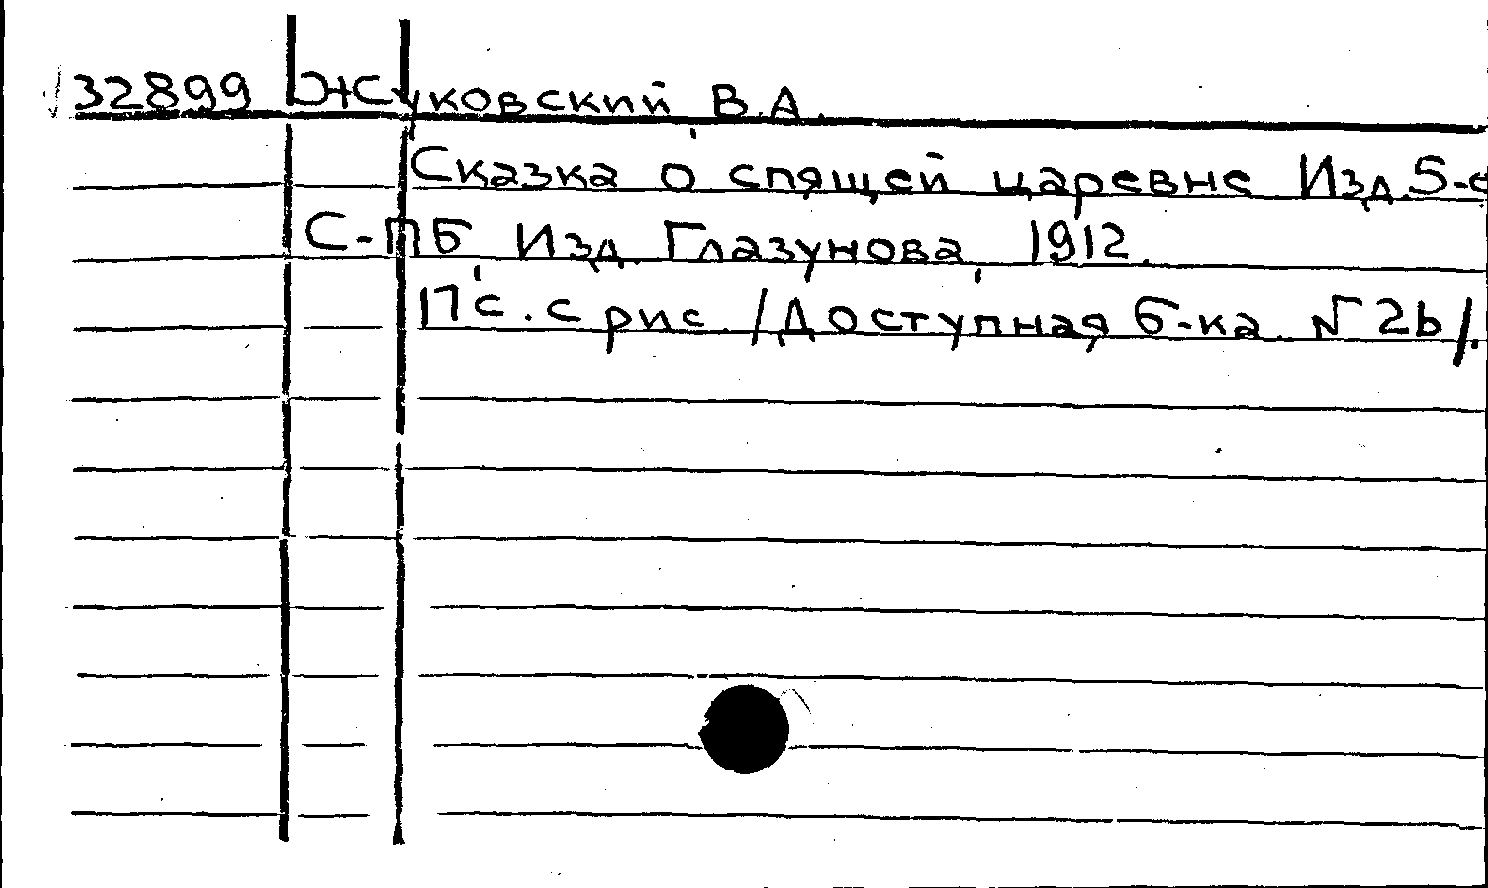 32899 Жуковский, В.А.
Сказка о спящей царевне. Изд. 5-е
С-ПБ, Изд. Глазунова, 1912.
17 с. с рис. /Доступная б-ка. № 26/.